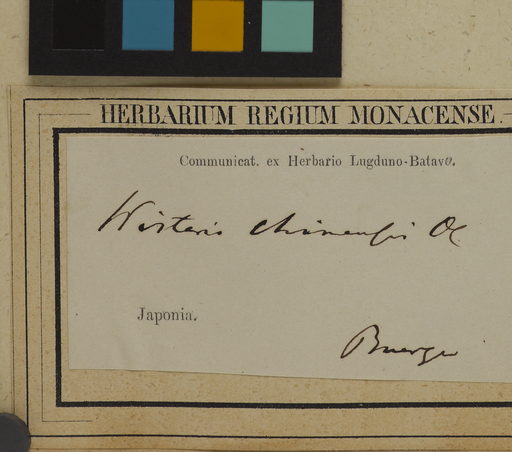 HERBARIUM REGIUM MONACENSE.
Communicat. ex Herbario Lugduno-Batavo.
Wisteria chinensis DC
Japonia.
Buerger